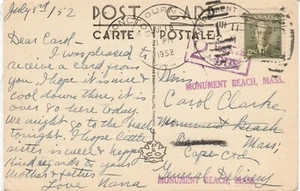 July 3rd/52
POST CARD
CARTE POSTALE
1952
Dear Carol.
I was pleased to
receive a card from
you. I hope it is nice &
cool down there, it is
over 80 here today.
We might go to the track
tonight. I hope little
sister is well & happy.
Kind regards to your
Mother & father
Love Nana
Miss
Carol Clarke
Monument Beach
Cape Cod
Mass.
General Delivery
MONUMENT BEACH, MASS.
MONUMENT BEACH, MASS.